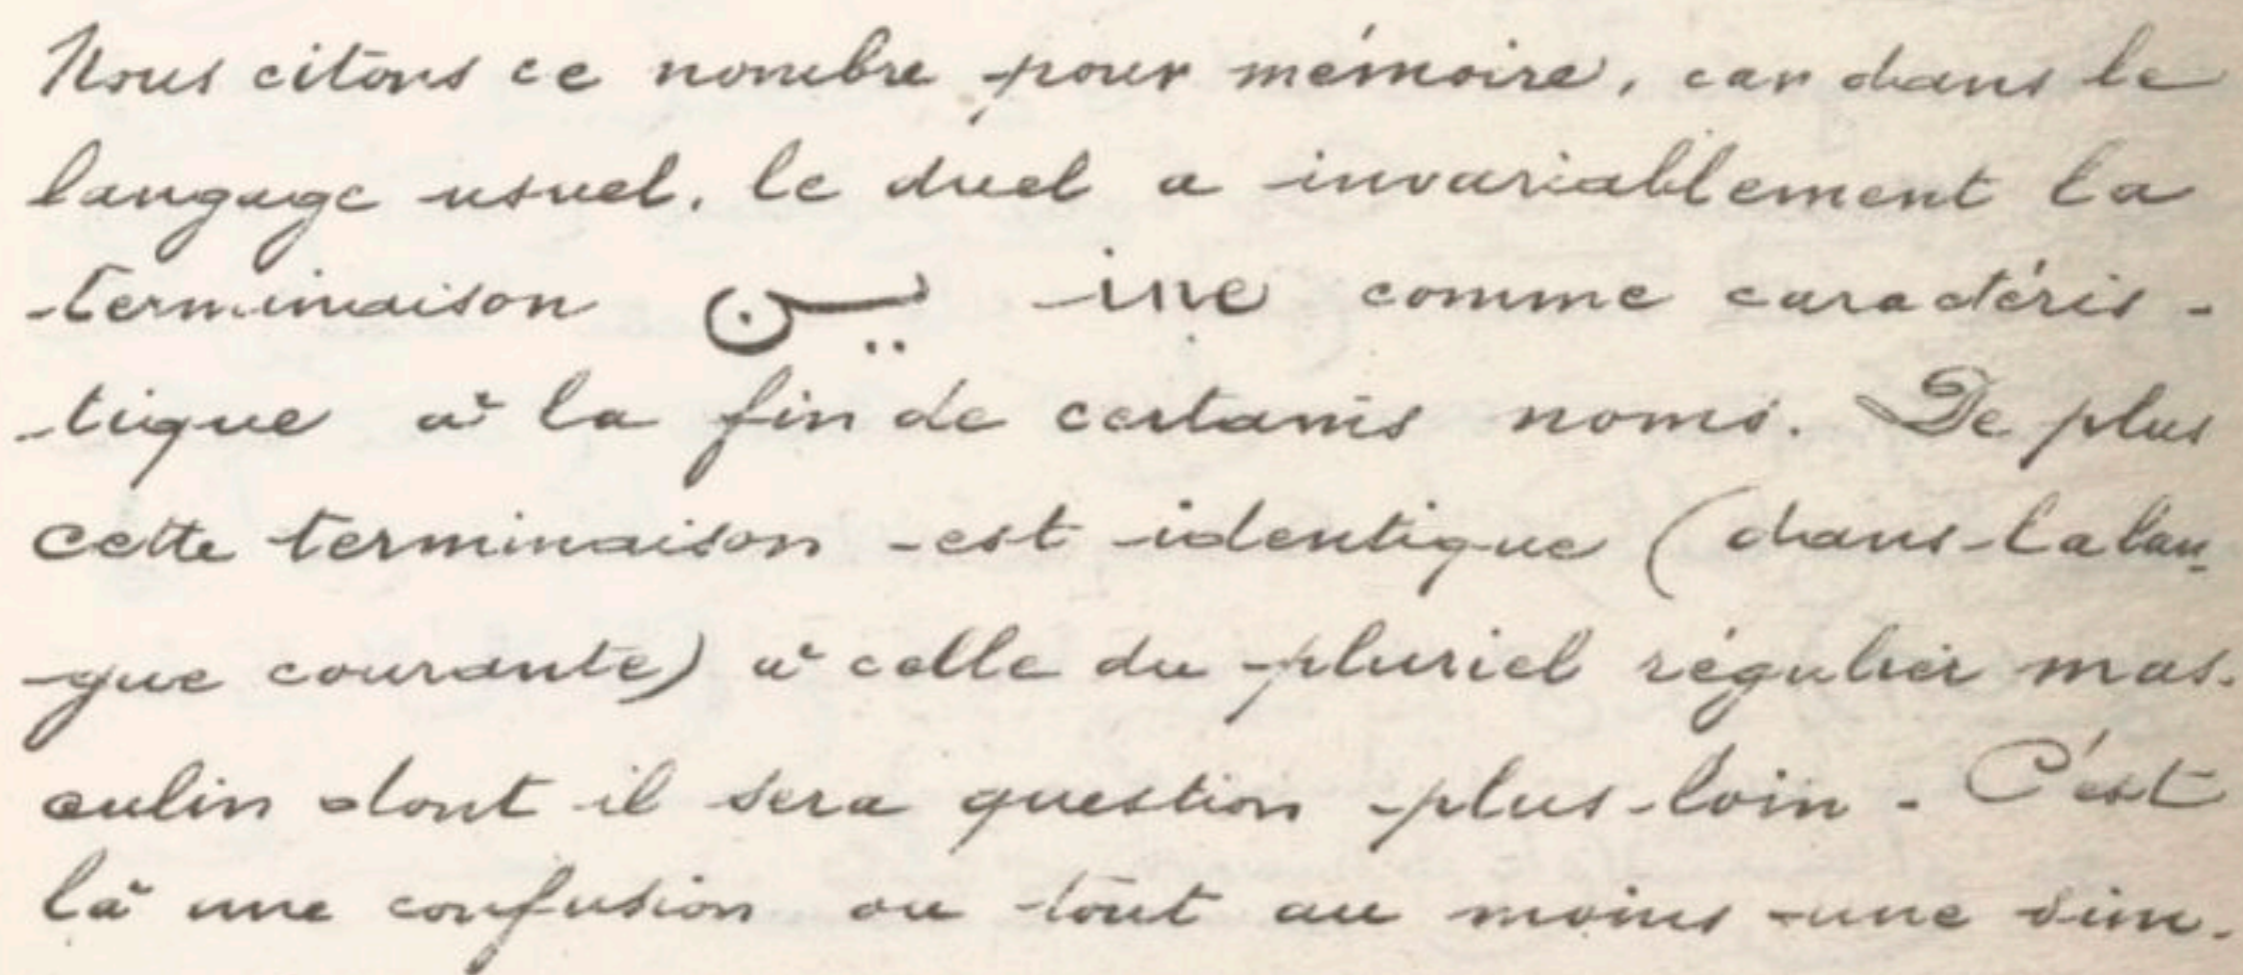 Nous citons ce nombre pour mémoire, car dans le
langage usuel, le duel a invariablement la
terminaison ـين ine comme caractéris-
tique à la fin de certains noms. De plus
cette terminaison est identique (dans la lan-
gue courante) à celle du pluriel régulier mas-
culin dont il sera question plus loin. C'est
là une confusion ou tout au moins une sim-